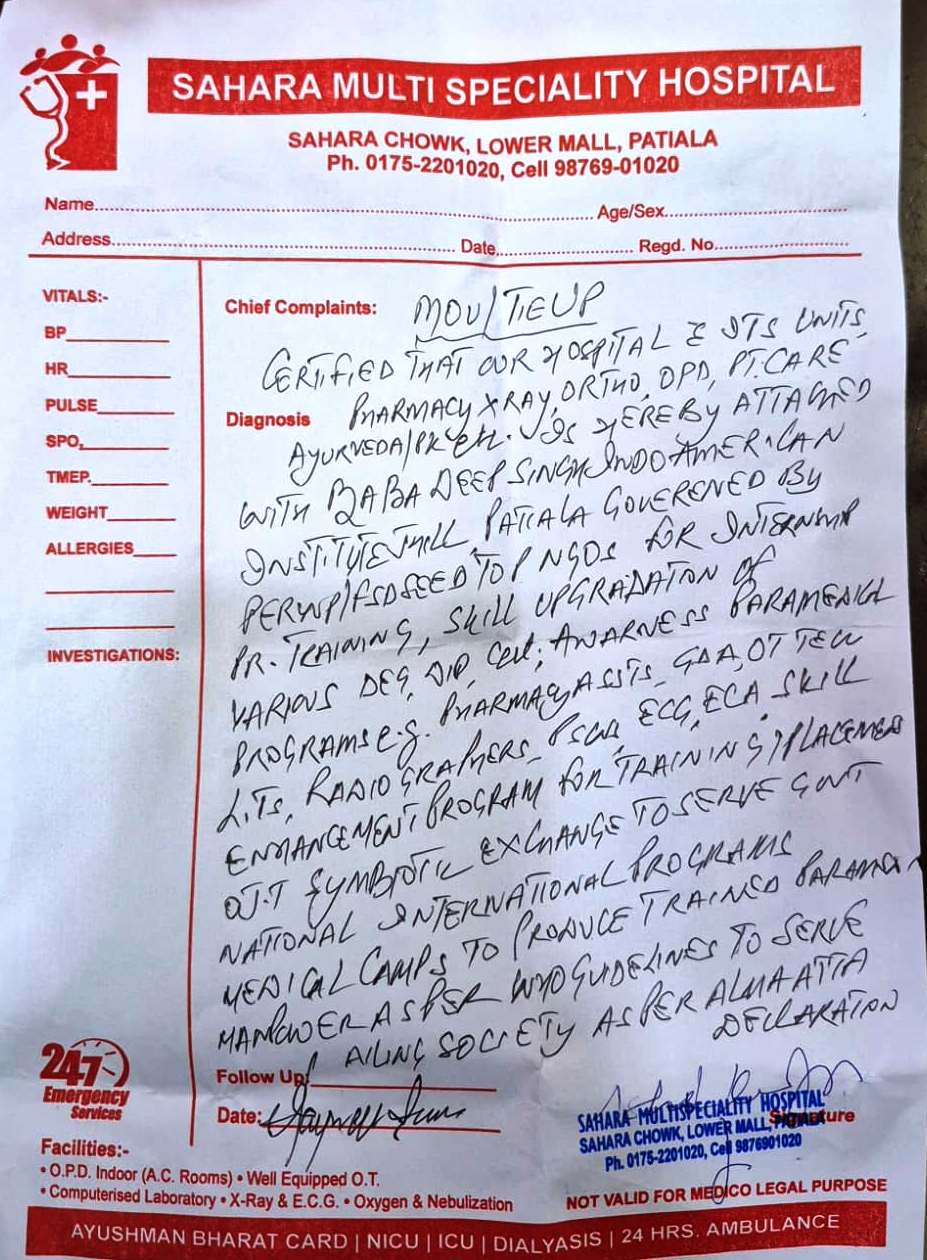 SAHARA MULTI SPECIALITY HOSPITAL
SAHARA CHOWK, LOWER MALL, PATIALA
Ph. 0175-2201020, Cell 98769-01020
Name.......... Age/Sex..........
Address.......... Date.......... Regd. No..........
VITALS:-
BP
HR
PULSE
SPO2
TMEP.
WEIGHT
ALLERGIES
INVESTIGATIONS:
Chief Complaints: MOU/TIEUP
CERTIFIED THAT OUR HOSPITAL & ITS UNITS
PHARMACY XRAY, ORTHO, OPD, PT. CARE
Diagnosis
AYURVEDA/PK etc. IS HEREBY ATTACHED
WITH BABA DEEP SINGH INDO AMERICAN
INSTITUTE SKILL PATIALA GOVERENED BY
TOP NGOS FOR INTERNSHIP
PR. TRAINING, SKILL UPGRADATION OF
VARIOUS DEG, DIP, Cer; AWARNESS PARAMEDICAL
PROGRAMS e.g. PHARMACY ASSTS, GDA, OT TECH
L.Ts, RADIOGRAPHERS, ECG, ECA. SKILL
ENHANCEMENT PROGRAM FOR TRAINING, PLACEMENT
OJT SYMBIOTIC EXCHANGE TO SERVE GOVT
NATIONAL INTERNATIONAL PROGRAMS
MEDICAL CAMPS TO PRODUCE TRAINED
MANPOWER AS PER WHO GUIDELINES TO SERVE
AILING SOCIETY AS PER ALMA ATTA
DECLARATION
Follow Up:
Date:
Signature
SAHARA MULTISPECIALITY HOSPITAL
SAHARA CHOWK, LOWER MALL, PATIALA
Ph. 0175-2201020, Cell 9876901020
24x7
Emergency
Services
Facilities:-
• O.P.D. Indoor (A.C. Rooms) • Well Equipped O.T.
• Computerised Laboratory • X-Ray & E.C.G. • Oxygen & Nebulization
NOT VALID FOR MEDICO LEGAL PURPOSE
AYUSHMAN BHARAT CARD | NICU | ICU | DIALYASIS | 24 HRS. AMBULANCE